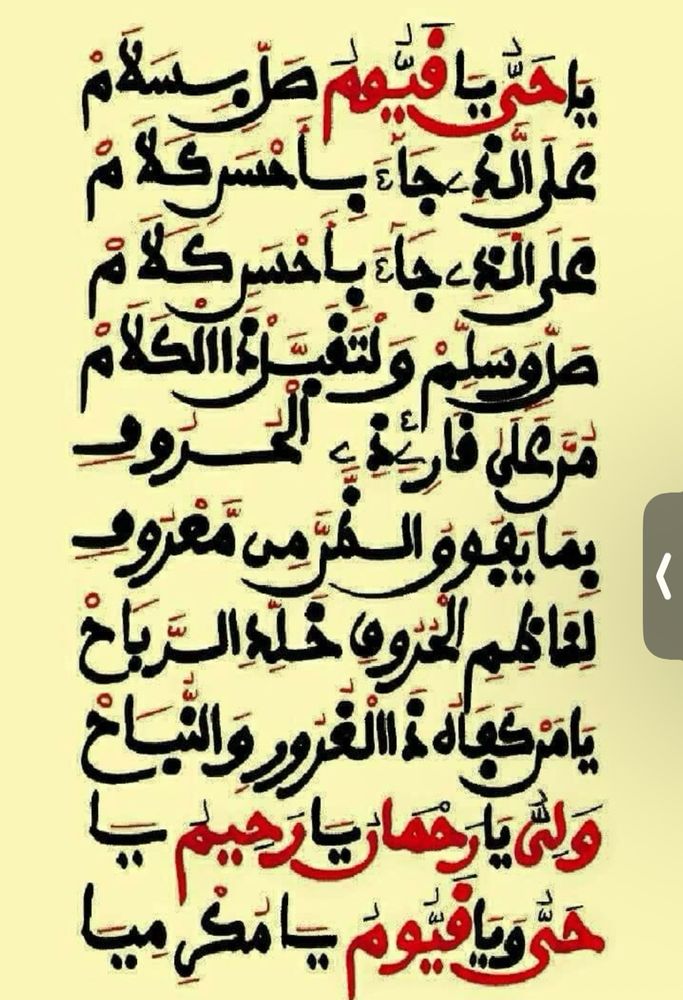 يَا حَىُّ يَا قَيُّومُ صَلِّ بِسَلَامْ
عَلَى الَّذِے جَآءَ بِأَحْسَنِ كَلَامْ
عَلَى الَّذِے جَآءَ بِأَحْسَنِ كَلَامْ
صَلِّ وَسَلِّمْ وَلْتَقَبَّلْ ذَا الْكَلَامْ
مُرَّ عَلَى قَارِئِ ذِے الْحُرُوفِ
بِمَا يَفُوقُ الظَّنَّ مِن مَّعْرُوفِ
الْحُرُوفِ خَلِّدِ الرَّبَاحْ
يَا مَنْ كَفَاهُ ذَا الْغُرُورِ وَالنُّبَاحْ
وَلِىُّ يَا رَحْمَانُ يَا رَحِيمُ يَا
حَىُّ وَيَا قَيُّومُ يَا مُكْرِمِيَا